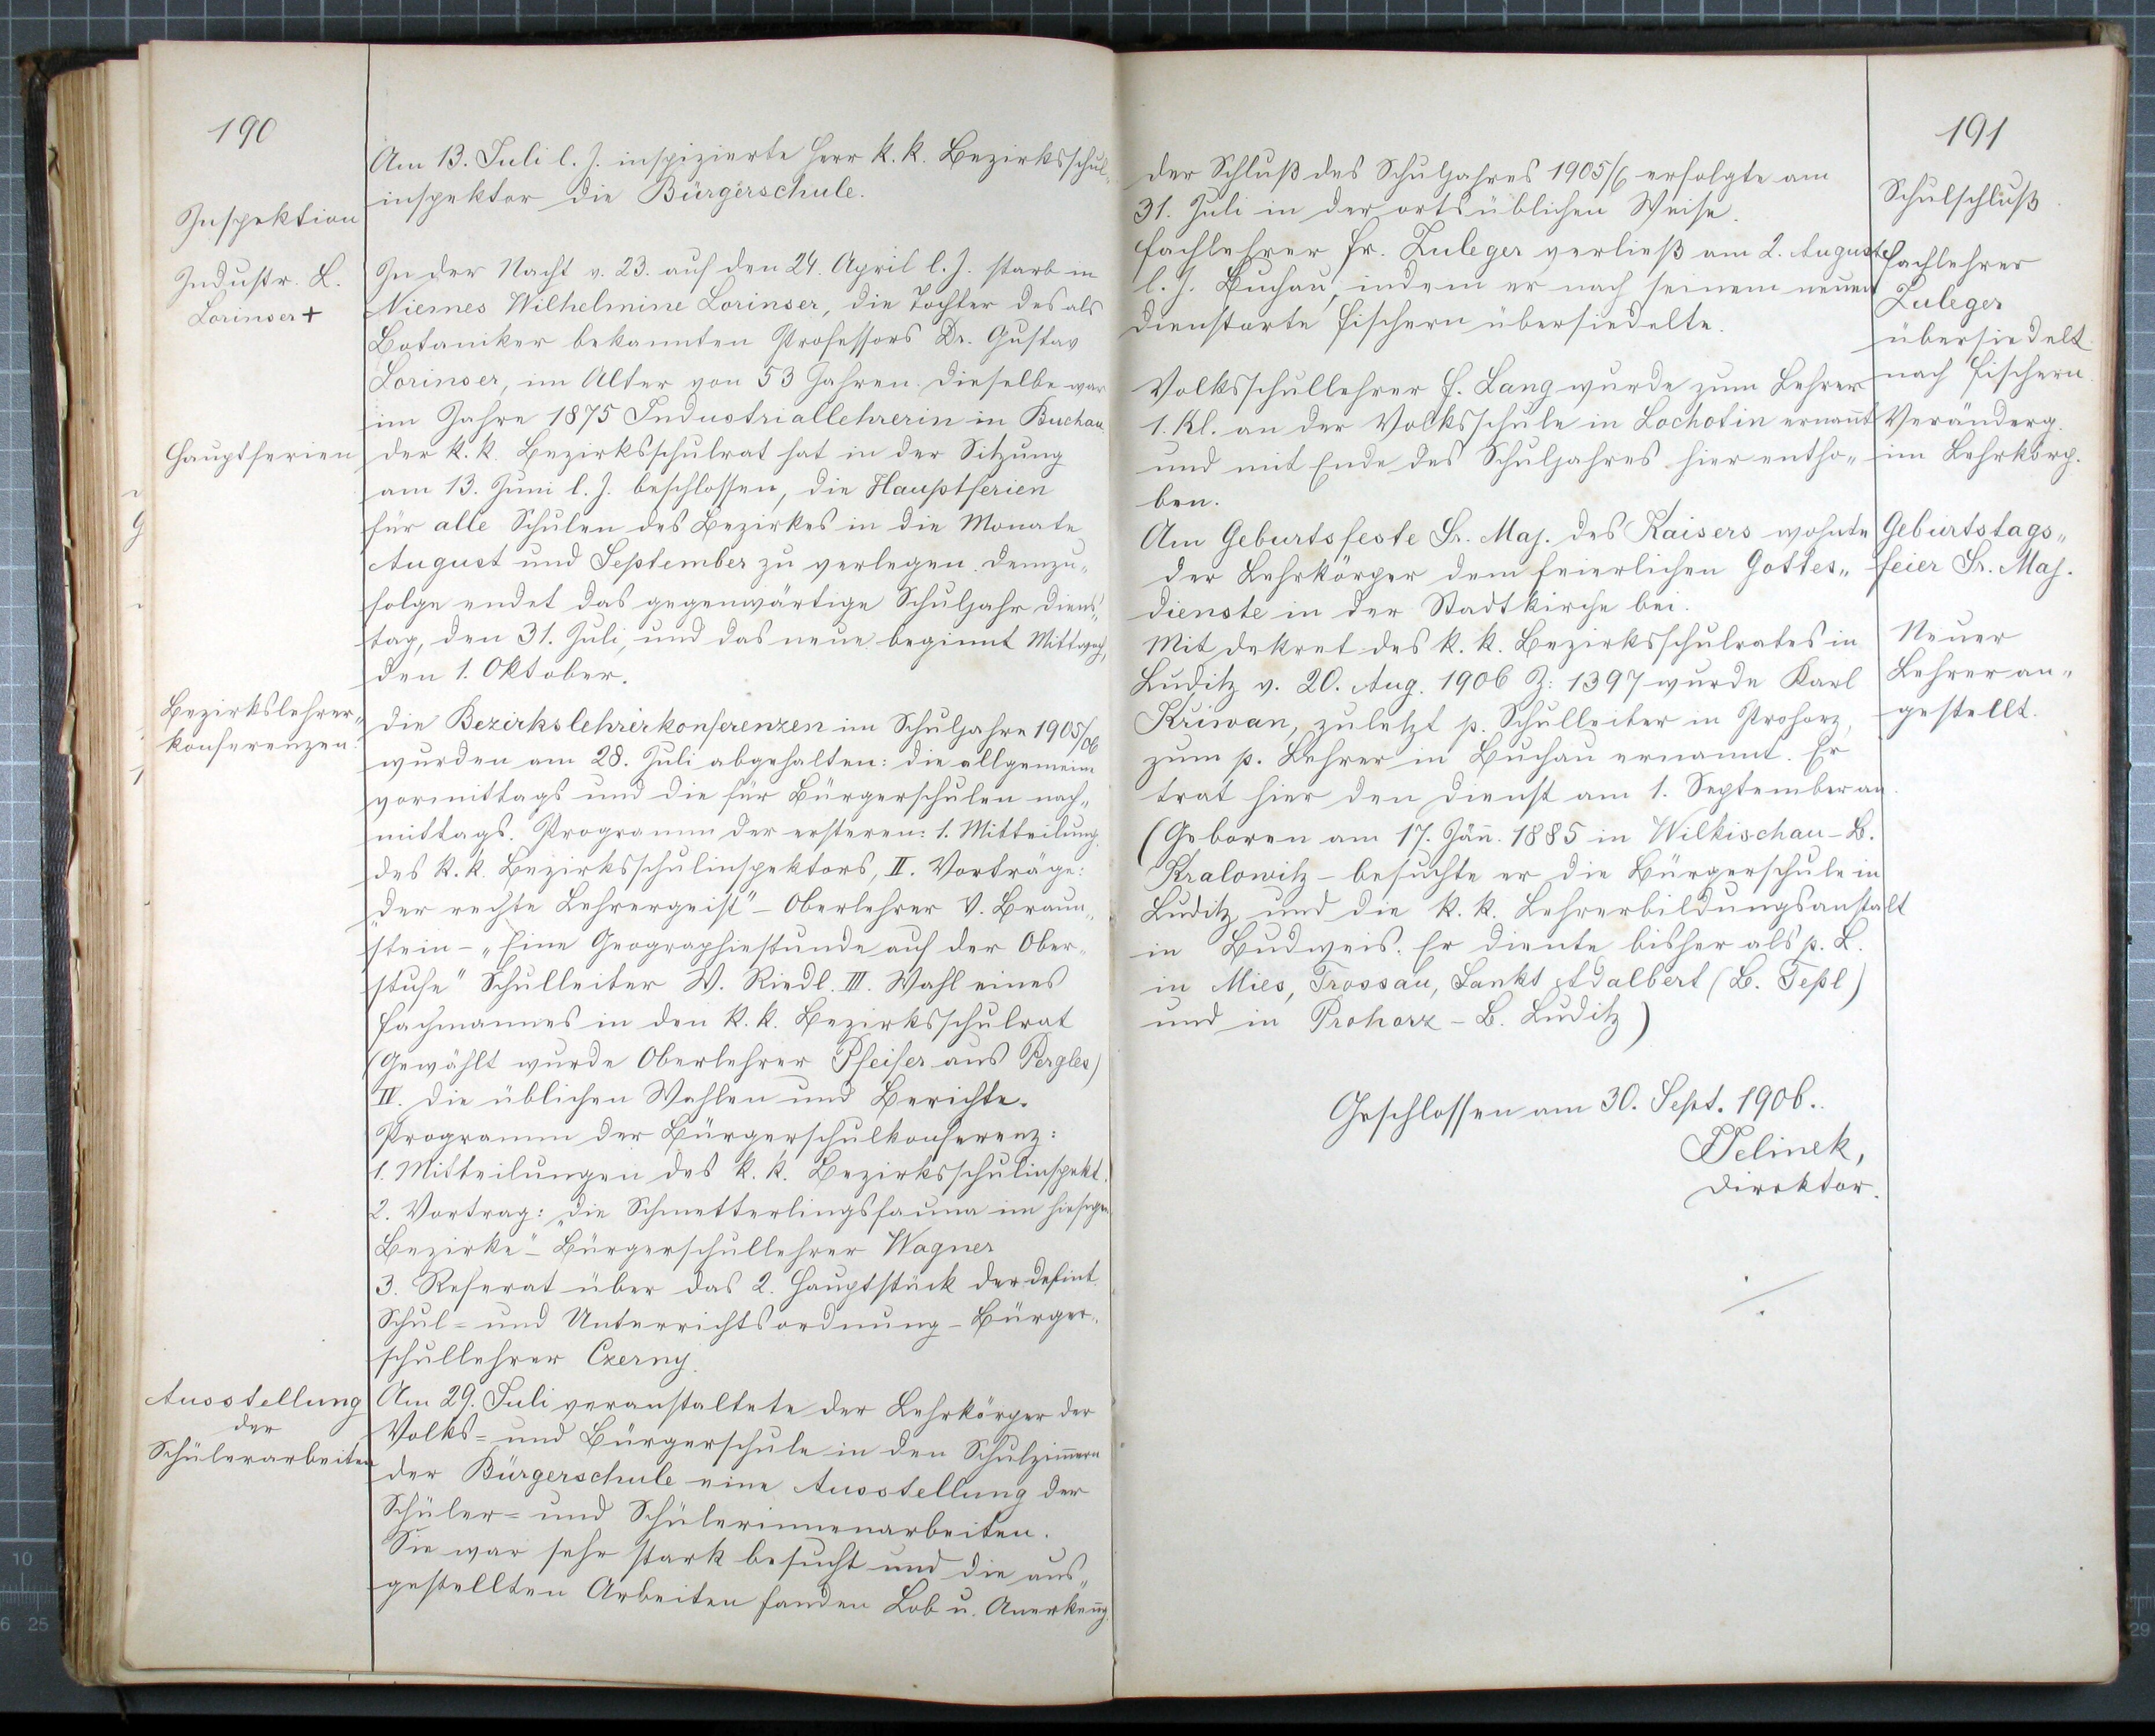 190
Am 13. Juli l. J. inspizierte Herr k. k. Bezirksschul-
inspektor die Bürgerschule.
Inspektion
Industr. L.
Lorinser +
In der Nacht v. 23. auf den 24. April l. J. starb in
Niemes Wilhelmine Lorinser, die Tochter des als
Botaniker bekannten Professors Dr. Gustav
Lorinser, im Alter von 53 Jahren. Dieselbe war
im Jahre 1875 Industriallehrerin in Buchau.
Hauptferien
Der k. k. Bezirksschulrat hat in der Sitzung
am 13. Juni l. J. beschlossen, die Hauptferien
für alle Schulen des Bezirkes in die Monate
August und September zu verlegen. Demzu-
folge endet das gegenwärtige Schuljahr Diens-
tag, den 31. Juli, und das neue beginnt Mittwoch,
den 1. Oktober.
Bezirkslehrer-
konferenzen.
Die Bezirkslehrerkonferenzen im Schuljahre 1905/06
wurden am 28. Juli abgehalten: die allgemeine
vormittags und die für Bürgerschulen nach-
mittags. Programm der ersteren: 1. Mitteilung.
des k. k. Bezirksschulinspektors, II. Vorträge:
„Der rechte Lehrergeist" – Oberlehrer V. Braun-
stein – „Eine Geographiestunde auf der Ober-
stufe" Schulleiter W. Riedl. III. Wahl eines
Fachmannes in den k. k. Bezirksschulrat
(Gewählt wurde Oberlehrer Pfeifer aus Pergles)
IV. Die üblichen Wahlen und Berichte.
Programm der Bürgerschulkonferenz:
1. Mitteilungen des k. k. Bezirksschulinspekt.
2. Vortrag: „Die Schmetterlingsfauna im hiesigen
Bezirke" – Bürgerschullehrer Wagner
3. Referat über das 2. Hauptstück der definit.
Schul- und Unterrichtsordnung – Bürger-
schullehrer Czerny.
Ausstellung
der
Schülerarbeiten
Am 29. Juli veranstaltete der Lehrkörper der
Volks- und Bürgerschule in den Schulzim̅ern
der Bürgerschule eine Ausstellung der
Schüler- und Schülerinnenarbeiten.
Sie war sehr stark besucht und die aus-
gestellten Arbeiten fanden Lob u. Anerkeng.
191
Der Schluß des Schuljahres 1905/6 erfolgte am
31. Juli in der ortsüblichen Weise.
Schulschluß.
Fachlehrer Fr. Zuleger verließ am 2. August
l. J. Buchau, indem er nach seinem neuen
Dienstorte Fischern übersiedelte.
Fachlehrer
Zuleger
übersiedelt
nach Fischern.
Volksschullehrer F. Lang wurde zum Lehrer
1. Kl. an der Volksschule in Lochotin ernan̅t
und mit Ende des Schuljahres hier entho-
ben.
Veränderg.
im Lehrkörp.
Am Geburtsfeste Sr. Maj. des Kaisers wohnte
der Lehrkörper dem feierlichen Gottes-
dienste in der Stadtkirche bei.
Geburtstags-
feier Sr. Maj.
Mit Dekret des k. k. Bezirksschulrates in
Luditz v. 20. Aug. 1906 Z: 1397 wurde Karl
Kriwan, zuletzt p. Schulleiter in Prohorz,
zum p. Lehrer in Buchau ernannt. Er
trat hier den Dienst am 1. September an.
Neuer
Lehrer an-
gestellt.
(Geboren am 17. Jän̅. 1885 in Wilkischau – B.
Kralowitz – besuchte er die Bürgerschule in
Luditz und die k. k. Lehrerbildungsanstalt
in Budweis. Er diente bisher als p. L.
in Mies, Trossau, Sankt Adalbert (B. Tepl)
und in Prohorz – B. Luditz)
Geschlossen am 30. Sept. 1906.
Jelinek,
Direktor.
10
6 25
29